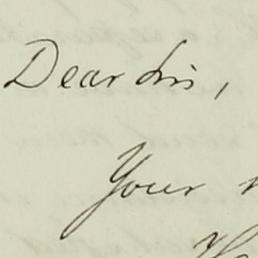 Dear Sir,
Your